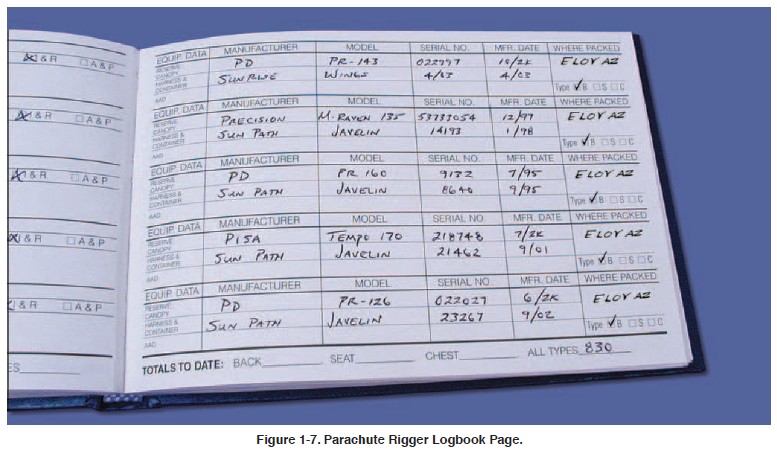 EQUIP. DATA MANUFACTURER MODEL SERIAL NO. MFR. DATE WHERE PACKED
RESERVE CANOPY PD PR-143 022777 ELOY AZ
HARNESS & CONTAINER SUNRISE WINGS 4/03 4/03
AAD Type ✓B □S □C
□A&P
EQUIP. DATA MANUFACTURER MODEL SERIAL NO. MFR. DATE WHERE PACKED
RESERVE CANOPY PRECISION M. RAVEN 135 53733054 12/97 ELOY AZ
HARNESS & CONTAINER SUN PATH JAVELIN 14193 1/98
AAD Type ✓B □S □C
A&R □A&P
EQUIP. DATA MANUFACTURER MODEL SERIAL NO. MFR. DATE WHERE PACKED
RESERVE CANOPY PD PR 160 9132 7/95 ELOY AZ
HARNESS & CONTAINER SUN PATH JAVELIN 8640 9/95
AAD Type ✓B □S □C
&R □A&P
EQUIP. DATA MANUFACTURER MODEL SERIAL NO. MFR. DATE WHERE PACKED
RESERVE CANOPY PISA TEMPO 170 218748 7/2K ELOY AZ
HARNESS & CONTAINER SUN PATH JAVELIN 21462 9/01
AAD Type ✓B □S □C
&R □A&P
EQUIP. DATA MANUFACTURER MODEL SERIAL NO. MFR. DATE WHERE PACKED
RESERVE CANOPY PD PR-126 022027 6/2K ELOY AZ
HARNESS & CONTAINER SUN PATH JAVELIN 23267 9/02
AAD Type ✓B □S □C
&R □A&P
TOTALS TO DATE: BACK SEAT CHEST ALL TYPES 830
ES
Figure 1-7. Parachute Rigger Logbook Page.